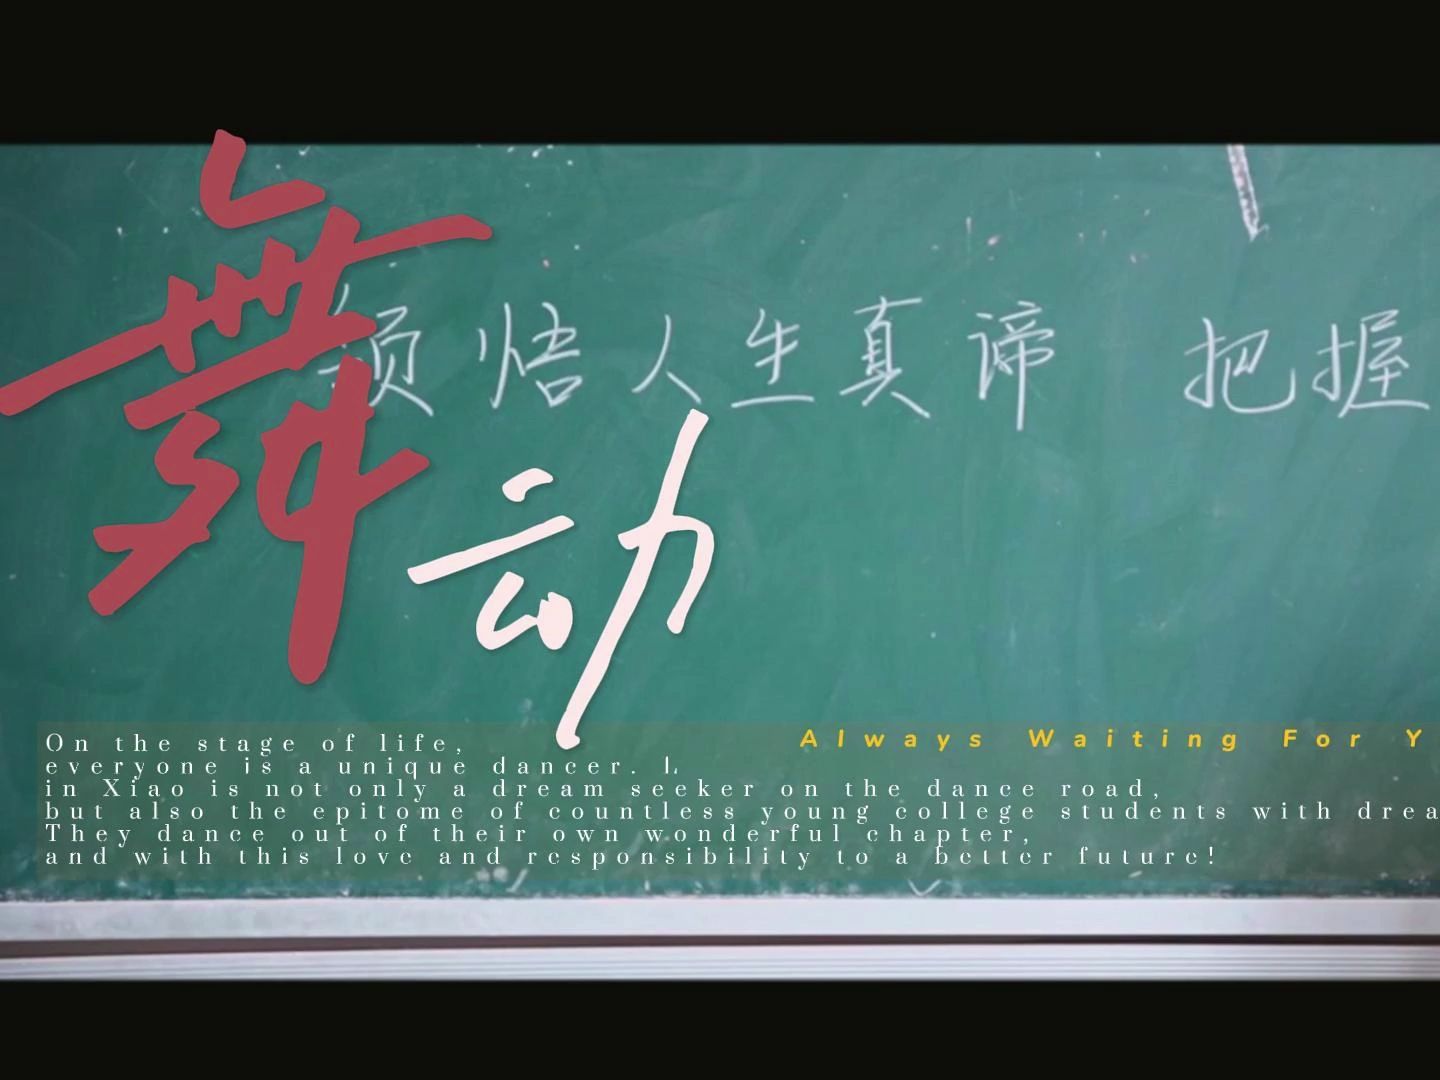 舞动
领悟人生真谛 把握
Always Waiting For Y
On the stage of life,
everyone is a unique dancer. L
in Xiao is not only a dream seeker on the dance road,
but also the epitome of countless young college students with drea
They dance out of their own wonderful chapter,
and with this love and responsibility to a better future!